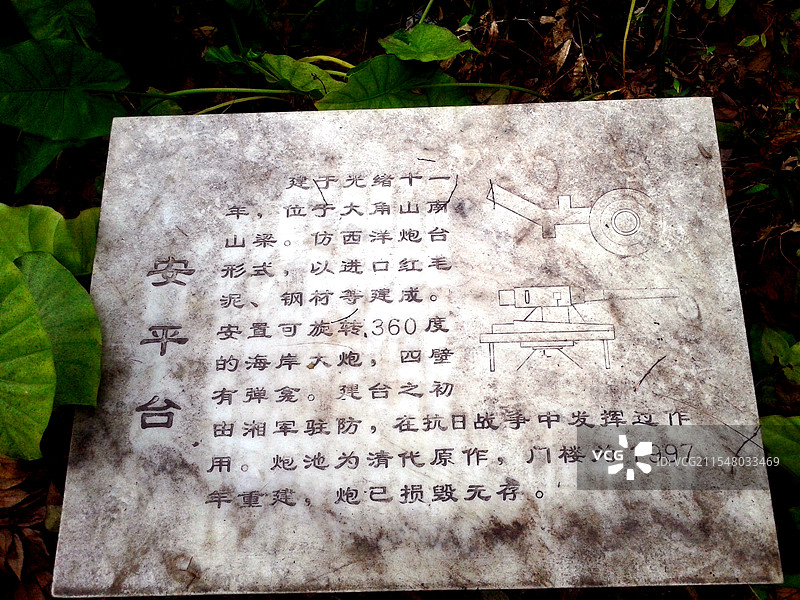 安平台
建于光绪十一
年，位于大角山南
山梁。仿西洋炮台
形式，以进口红毛
泥、钢材等建成。
安置可旋转360度
的海岸大炮，四壁
有弹龛。建台之初
由湘军驻防，在抗日战争中发挥过作
用。炮池为清代原作，门楼为1997
年重建，炮已损毁无存。
VCG
VCG211548033469